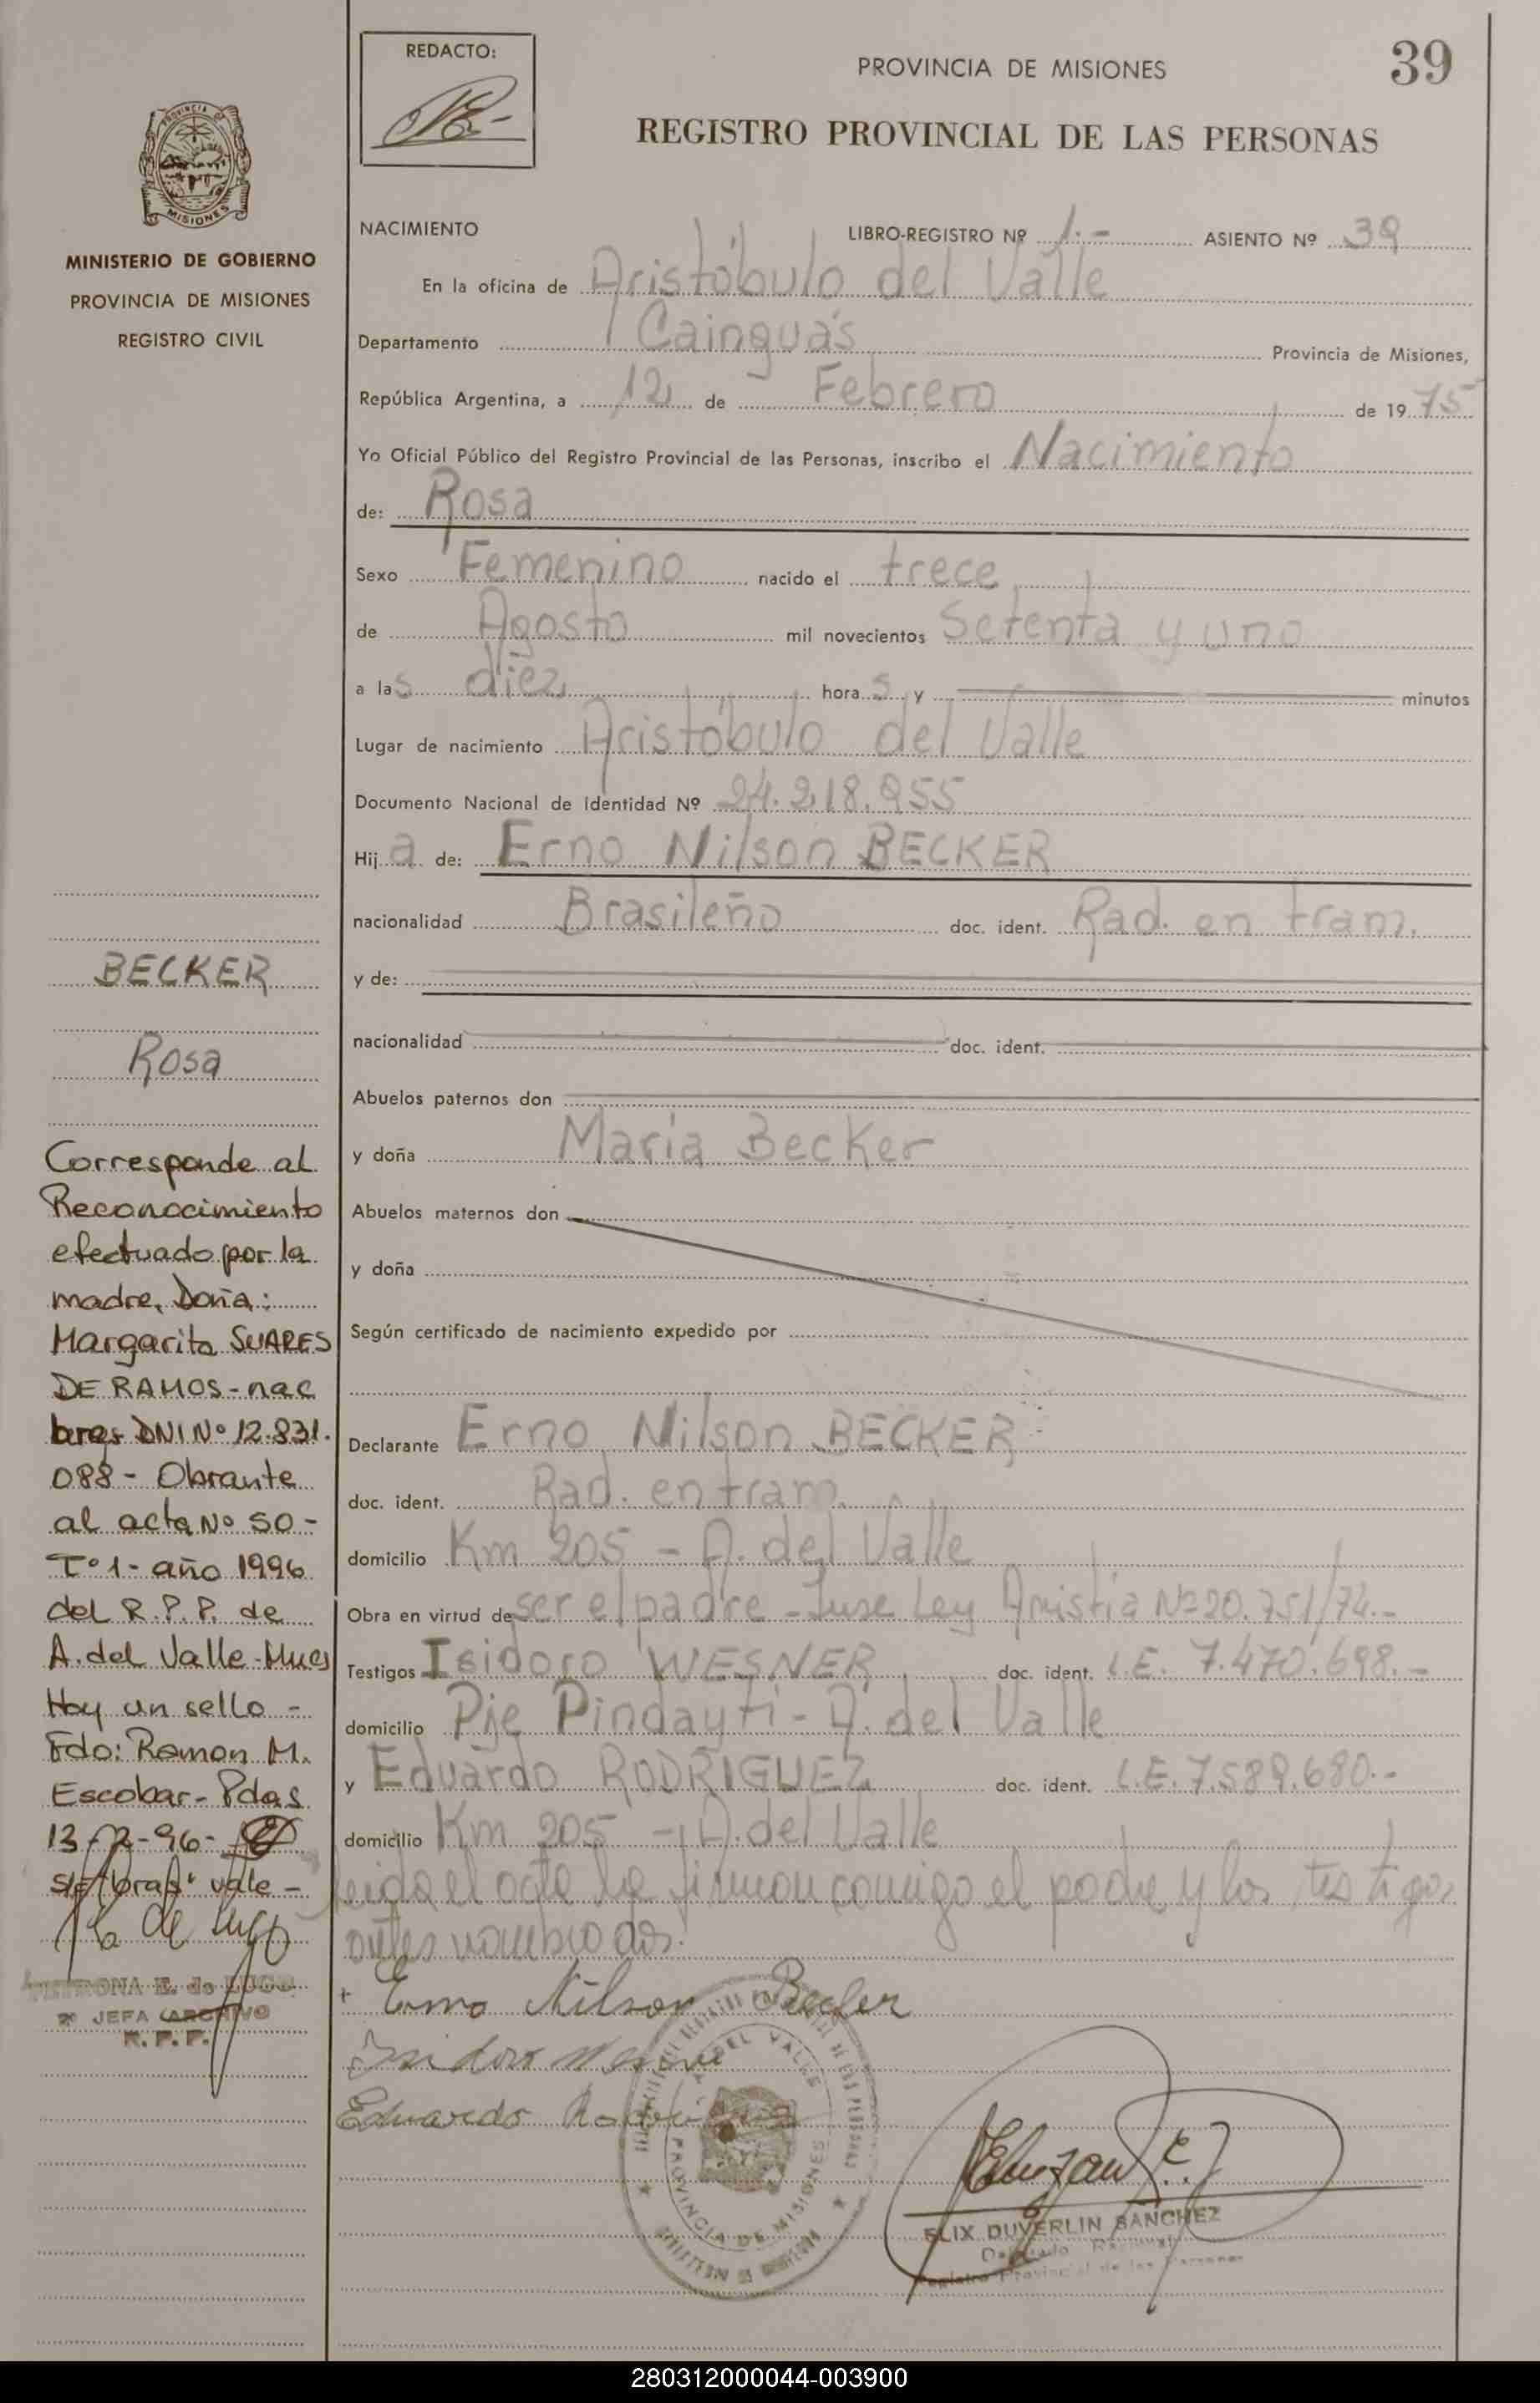 REDACTO:
PROVINCIA DE MISIONES
39
REGISTRO PROVINCIAL DE LAS PERSONAS
MINISTERIO DE GOBIERNO
PROVINCIA DE MISIONES
REGISTRO CIVIL
NACIMIENTO LIBRO-REGISTRO Nº 1.- ASIENTO Nº 39
En la oficina de Aristóbulo del Valle
Departamento Cainguás Provincia de Misiones,
República Argentina, a 12 de Febrero de 1975
Yo Oficial Público del Registro Provincial de las Personas, inscribo el Nacimiento
de: Rosa
Sexo Femenino nacido el trece
de Agosto mil novecientos Setenta y uno
a las diez horas y minutos
Lugar de nacimiento Aristóbulo del Valle
Documento Nacional de Identidad Nº 24.218.955
Hija de: Erno Nilson BECKER
nacionalidad Brasileño doc. ident. Rad. en tram.
y de:
nacionalidad doc. ident.
Abuelos paternos don
y doña Maria Becker
Abuelos maternos don
y doña
Según certificado de nacimiento expedido por
Declarante Erno Nilson BECKER
doc. ident. Rad. en tram.
domicilio Km 205 - A. del Valle
Obra en virtud de ser el padre - Ley Amistia Nº 20.751/74.-
Testigos Isidoro WESNER doc. ident. L.E. 7.470.698.-
domicilio Pje Pindayti - A. del Valle
y Eduardo RODRIGUEZ doc. ident. L.E. 7.589.680.-
domicilio Km 205 - A. del Valle
Leida el acta la firman conmigo el padre y los testigos
antes nombrados.
Erno Nilson Becker
Isidoro Wesner
Eduardo Rodriguez
A. DEL VALLE
PROVINCIA DE MISIONES
FELIX DUVERLIN SANCHEZ
Registro Provincial de las Personas
BECKER
Rosa
Corresponde al
Reconocimiento
efectuado por la
madre, Doña:
Margarita SUARES
DE RAMOS - nac
bras DNI Nº 12.831.
088 - Obrante
al acta Nº 50 -
Tº 1 - año 1996
del R.P.P. de
A. del Valle - Mnes
Hay un sello -
Fdo: Ramon M.
Escobar - Pdas
13-2-96-
vale -
de Lugo
PETRONA E. de LUGO
JEFA ARCHIVO
R.P.P.
280312000044-003900